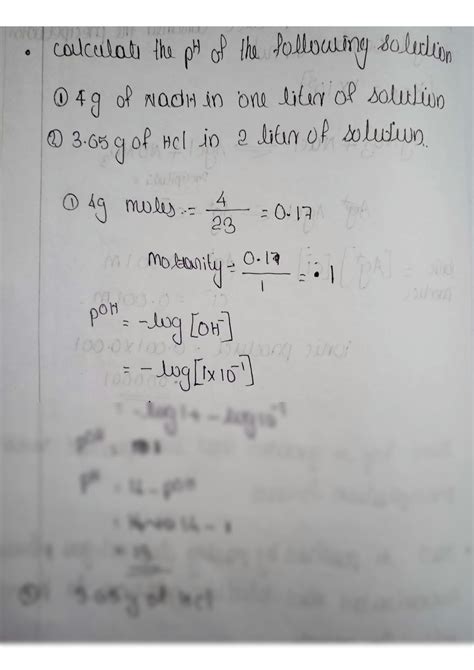 • calculate the pH of the following solution
① 4g of NaOH in one liter of solution
② 3.65g of HCl in 2 liter of solution.
① 4g moles := 4/23 = 0.17
molarity = 0.17/1 = .1
pOH = -log [OH-]
= -log [1x10⁻¹]
= -log 1 + -log10⁻¹
pH = 14 - pOH